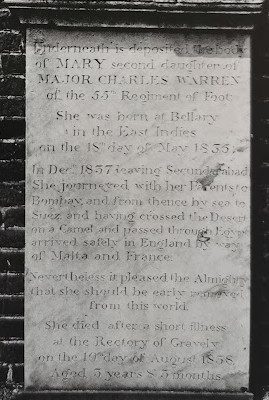 Underneath is deposited the body
of MARY second daughter of
MAJOR CHARLES WARREN
of the 55th Regiment of Foot.
She was born at Bellary
in the East Indies
on the 18th day of May 1835.
In Decr. 1837 leaving Secunderabad
She journeyed with her Parents to
Bombay, and from thence by sea to
Suez, and having crossed the Desert
on a Camel and passed through Egypt
arrived safely in England by way
of Malta and France.
Nevertheless it pleased the Almighty
that she should be early removed
from this world.
She died after a short illness
at the Rectory of Gravely
on the 19th day of August 1838.
Aged 3 years & 3 months.